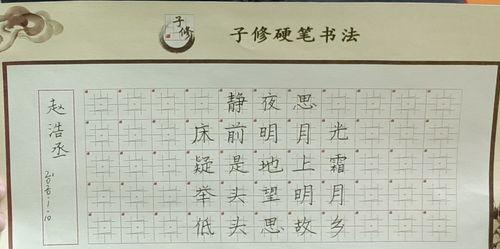 子修
子修硬笔书法
静夜思
床前明月光
疑是地上霜
举头望明月
低头思故乡
赵浩丞